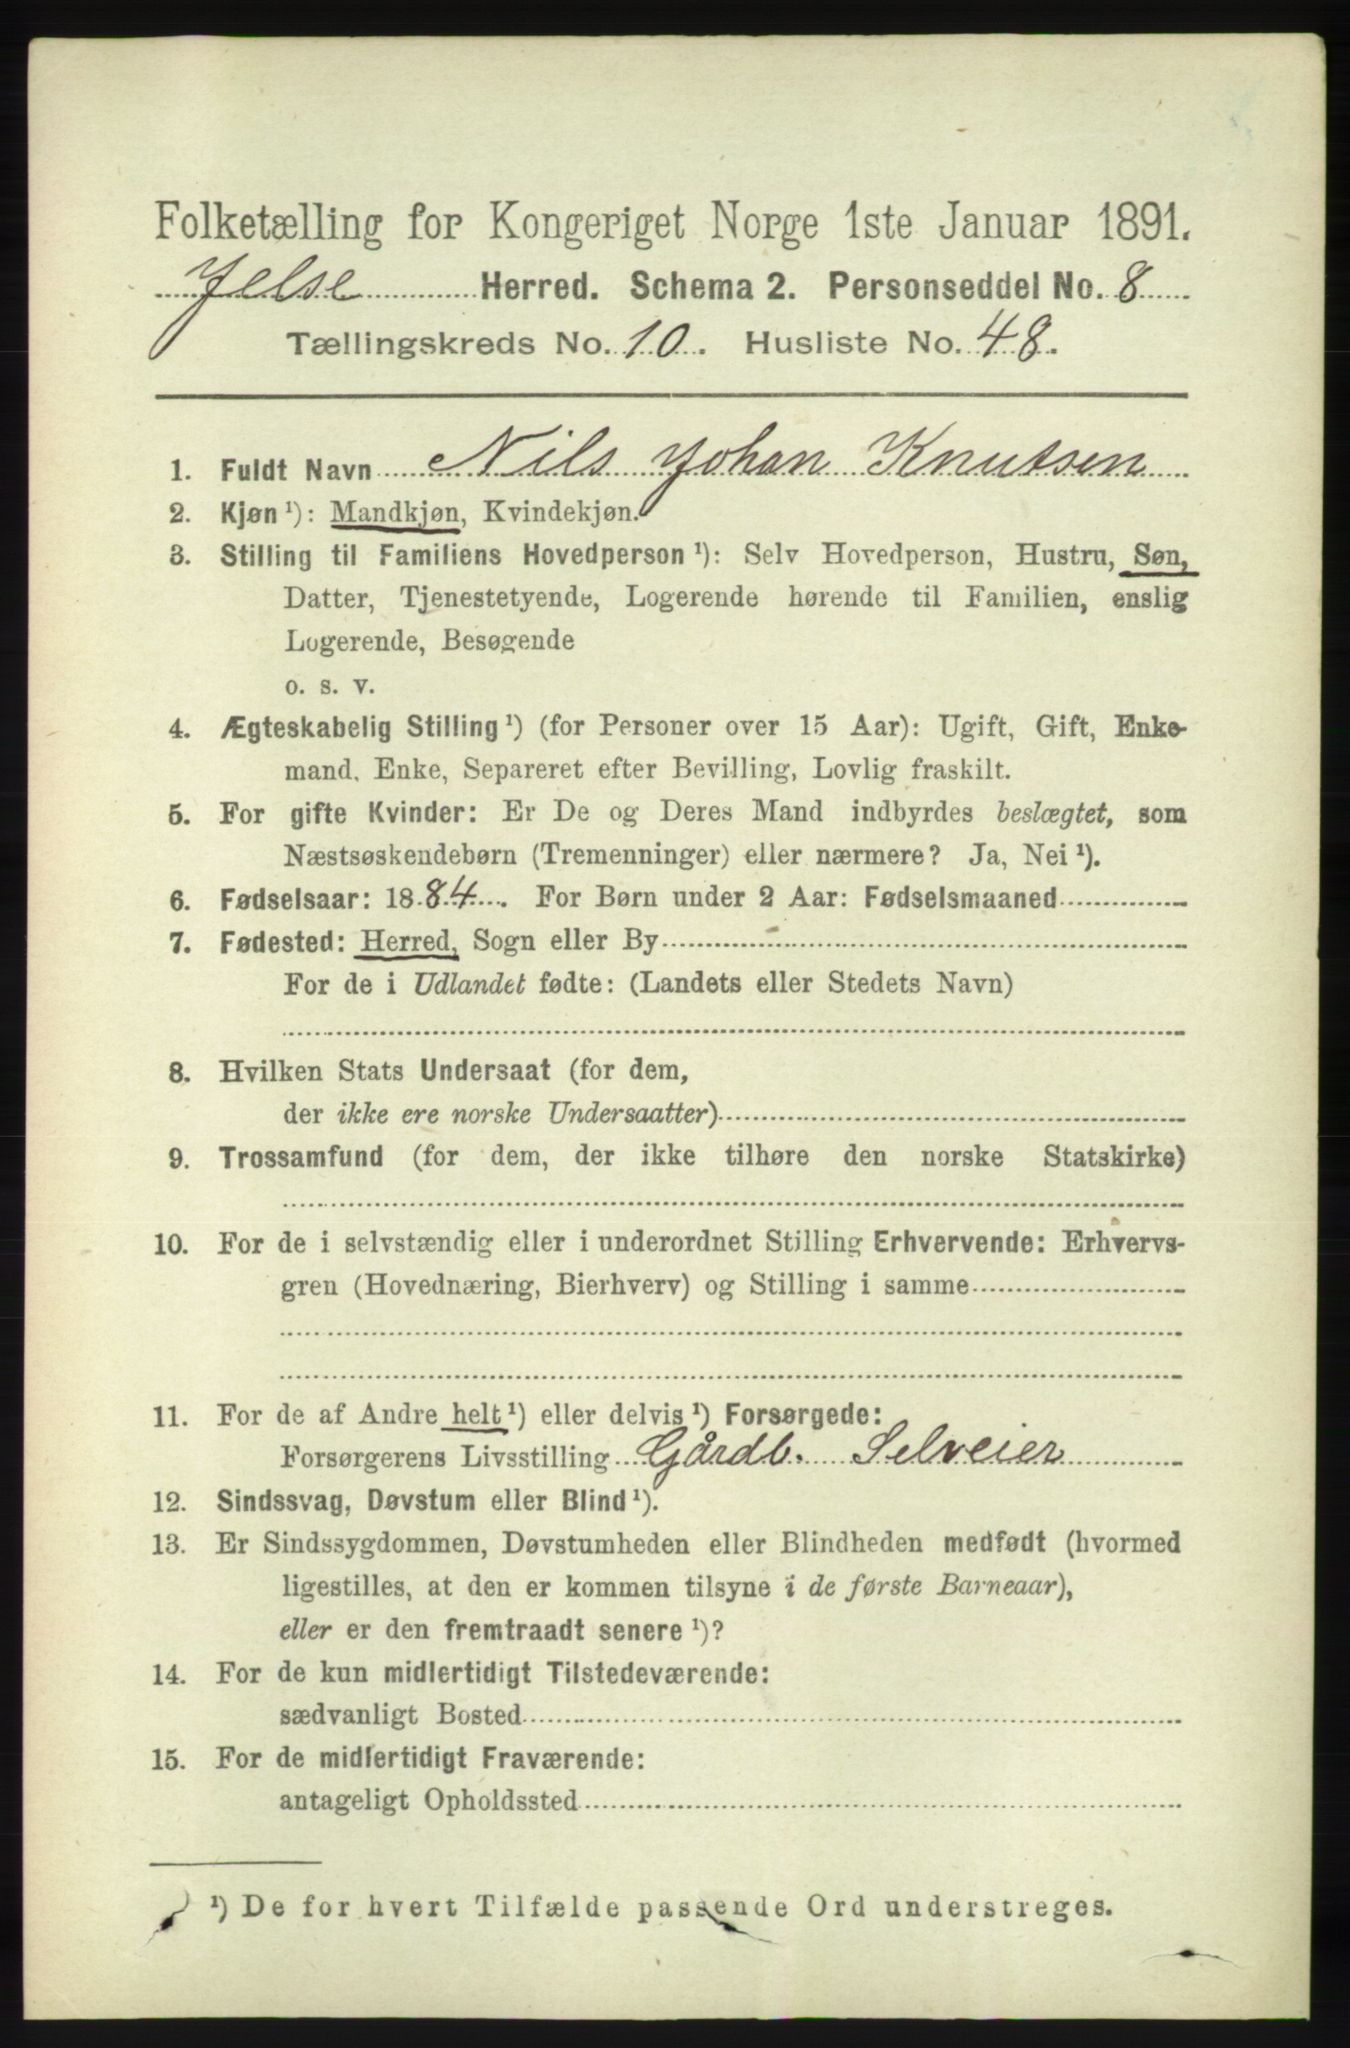 Folketælling for Kongeriget Norge 1ste Januar 1891.
Jelse Herred. Schema 2. Personseddel No. 8
Tællingskreds No. 10. Husliste No. 48.
1. Fuldt Navn Nils Johan Knutsen
2. Kjøn ¹): Mandkjøn, Kvindekjøn.
3. Stilling til Familiens Hovedperson ¹): Selv Hovedperson, Hustru, Søn,
Datter, Tjenestetyende, Logerende hørende til Familien, enslig
Logerende, Besøgende
o. s. v.
4. Ægteskabelig Stilling ¹) (for Personer over 15 Aar): Ugift, Gift, Enke-
mand, Enke, Separeret efter Bevilling, Lovlig fraskilt.
5. For gifte Kvinder: Er De og Deres Mand indbyrdes beslægtet, som
Næstsøskendebørn (Tremenninger) eller nærmere? Ja, Nei ¹).
6. Fødselsaar: 1884. For Børn under 2 Aar: Fødselsmaaned
7. Fødested: Herred, Sogn eller By
For de i Udlandet fødte: (Landets eller Stedets Navn)
8. Hvilken Stats Undersaat (for dem,
der ikke ere norske Undersaatter)
9. Trossamfund (for dem, der ikke tilhøre den norske Statskirke)
10. For de i selvstændig eller i underordnet Stilling Erhvervende: Erhvervs-
gren (Hovednæring, Bierhverv) og Stilling i samme
11. For de af Andre helt ¹) eller delvis ¹) Forsørgede:
Forsørgerens Livsstilling Gårdb. Selveier
12. Sindssvag, Døvstum eller Blind ¹).
13. Er Sindssygdommen, Døvstumheden eller Blindheden medfødt (hvormed
ligestilles, at den er kommen tilsyne i de første Barneaar),
eller er den fremtraadt senere ¹)?
14. For de kun midlertidigt Tilstedeværende:
sædvanligt Bosted
15. For de midlertidigt Fraværende:
antageligt Opholdssted
¹) De for hvert Tilfælde passende Ord understreges.